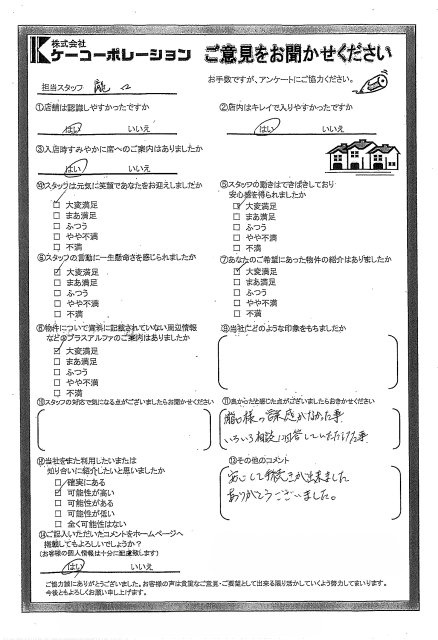 株式会社
ケーコーポレーション
ご意見をお聞かせください
お手数ですが、アンケートにご協力ください。
担当スタッフ 龍口
①店舗は認識しやすかったですか
はい いいえ
②店内はキレイで入りやすかったですか
はい いいえ
③入店時すみやかに席へのご案内はありましたか
はい いいえ
④スタッフは元気に笑顔であなたをお迎えしましたか
大変満足
まあ満足
ふつう
やや不満
不満
⑤スタッフの動きはてきぱきしており
安心感を得られましたか
大変満足
まあ満足
ふつう
やや不満
不満
⑥スタッフの言動に一生懸命さを感じられましたか
大変満足
まあ満足
ふつう
やや不満
不満
⑦あなたのご希望にあった物件の紹介はありましたか
大変満足
まあ満足
ふつう
やや不満
不満
⑧物件について資料に記載されていない周辺情報
などのプラスアルファのご案内はありましたか
大変満足
まあ満足
ふつう
やや不満
不満
⑨当社にどのような印象をもちましたか
⑩スタッフの対応で気になる点がございましたらお聞かせください
⑪良かったと感じた点がございましたらおきかせください
龍口様の営業感がなかった事
いろいろ相談に回答していただけた事
⑫当社をまた利用したいまたは
知り合いに紹介したいと思いましたか
確実にある
可能性が高い
可能性がある
可能性が低い
全く可能性はない
⑬その他のコメント
安心して手続きが出来ました
ありがとうございました。
⑭ご記入いただいたコメントをホームページへ
掲載してもよろしいでしょうか?
(お客様の個人情報は十分に配慮致します)
はい いいえ
ご協力誠にありがとうございました。お客様の声は貴重なご意見・ご要望として出来る限り活かしていくよう努力してまいります。
今後ともよろしくお願い申し上げます。